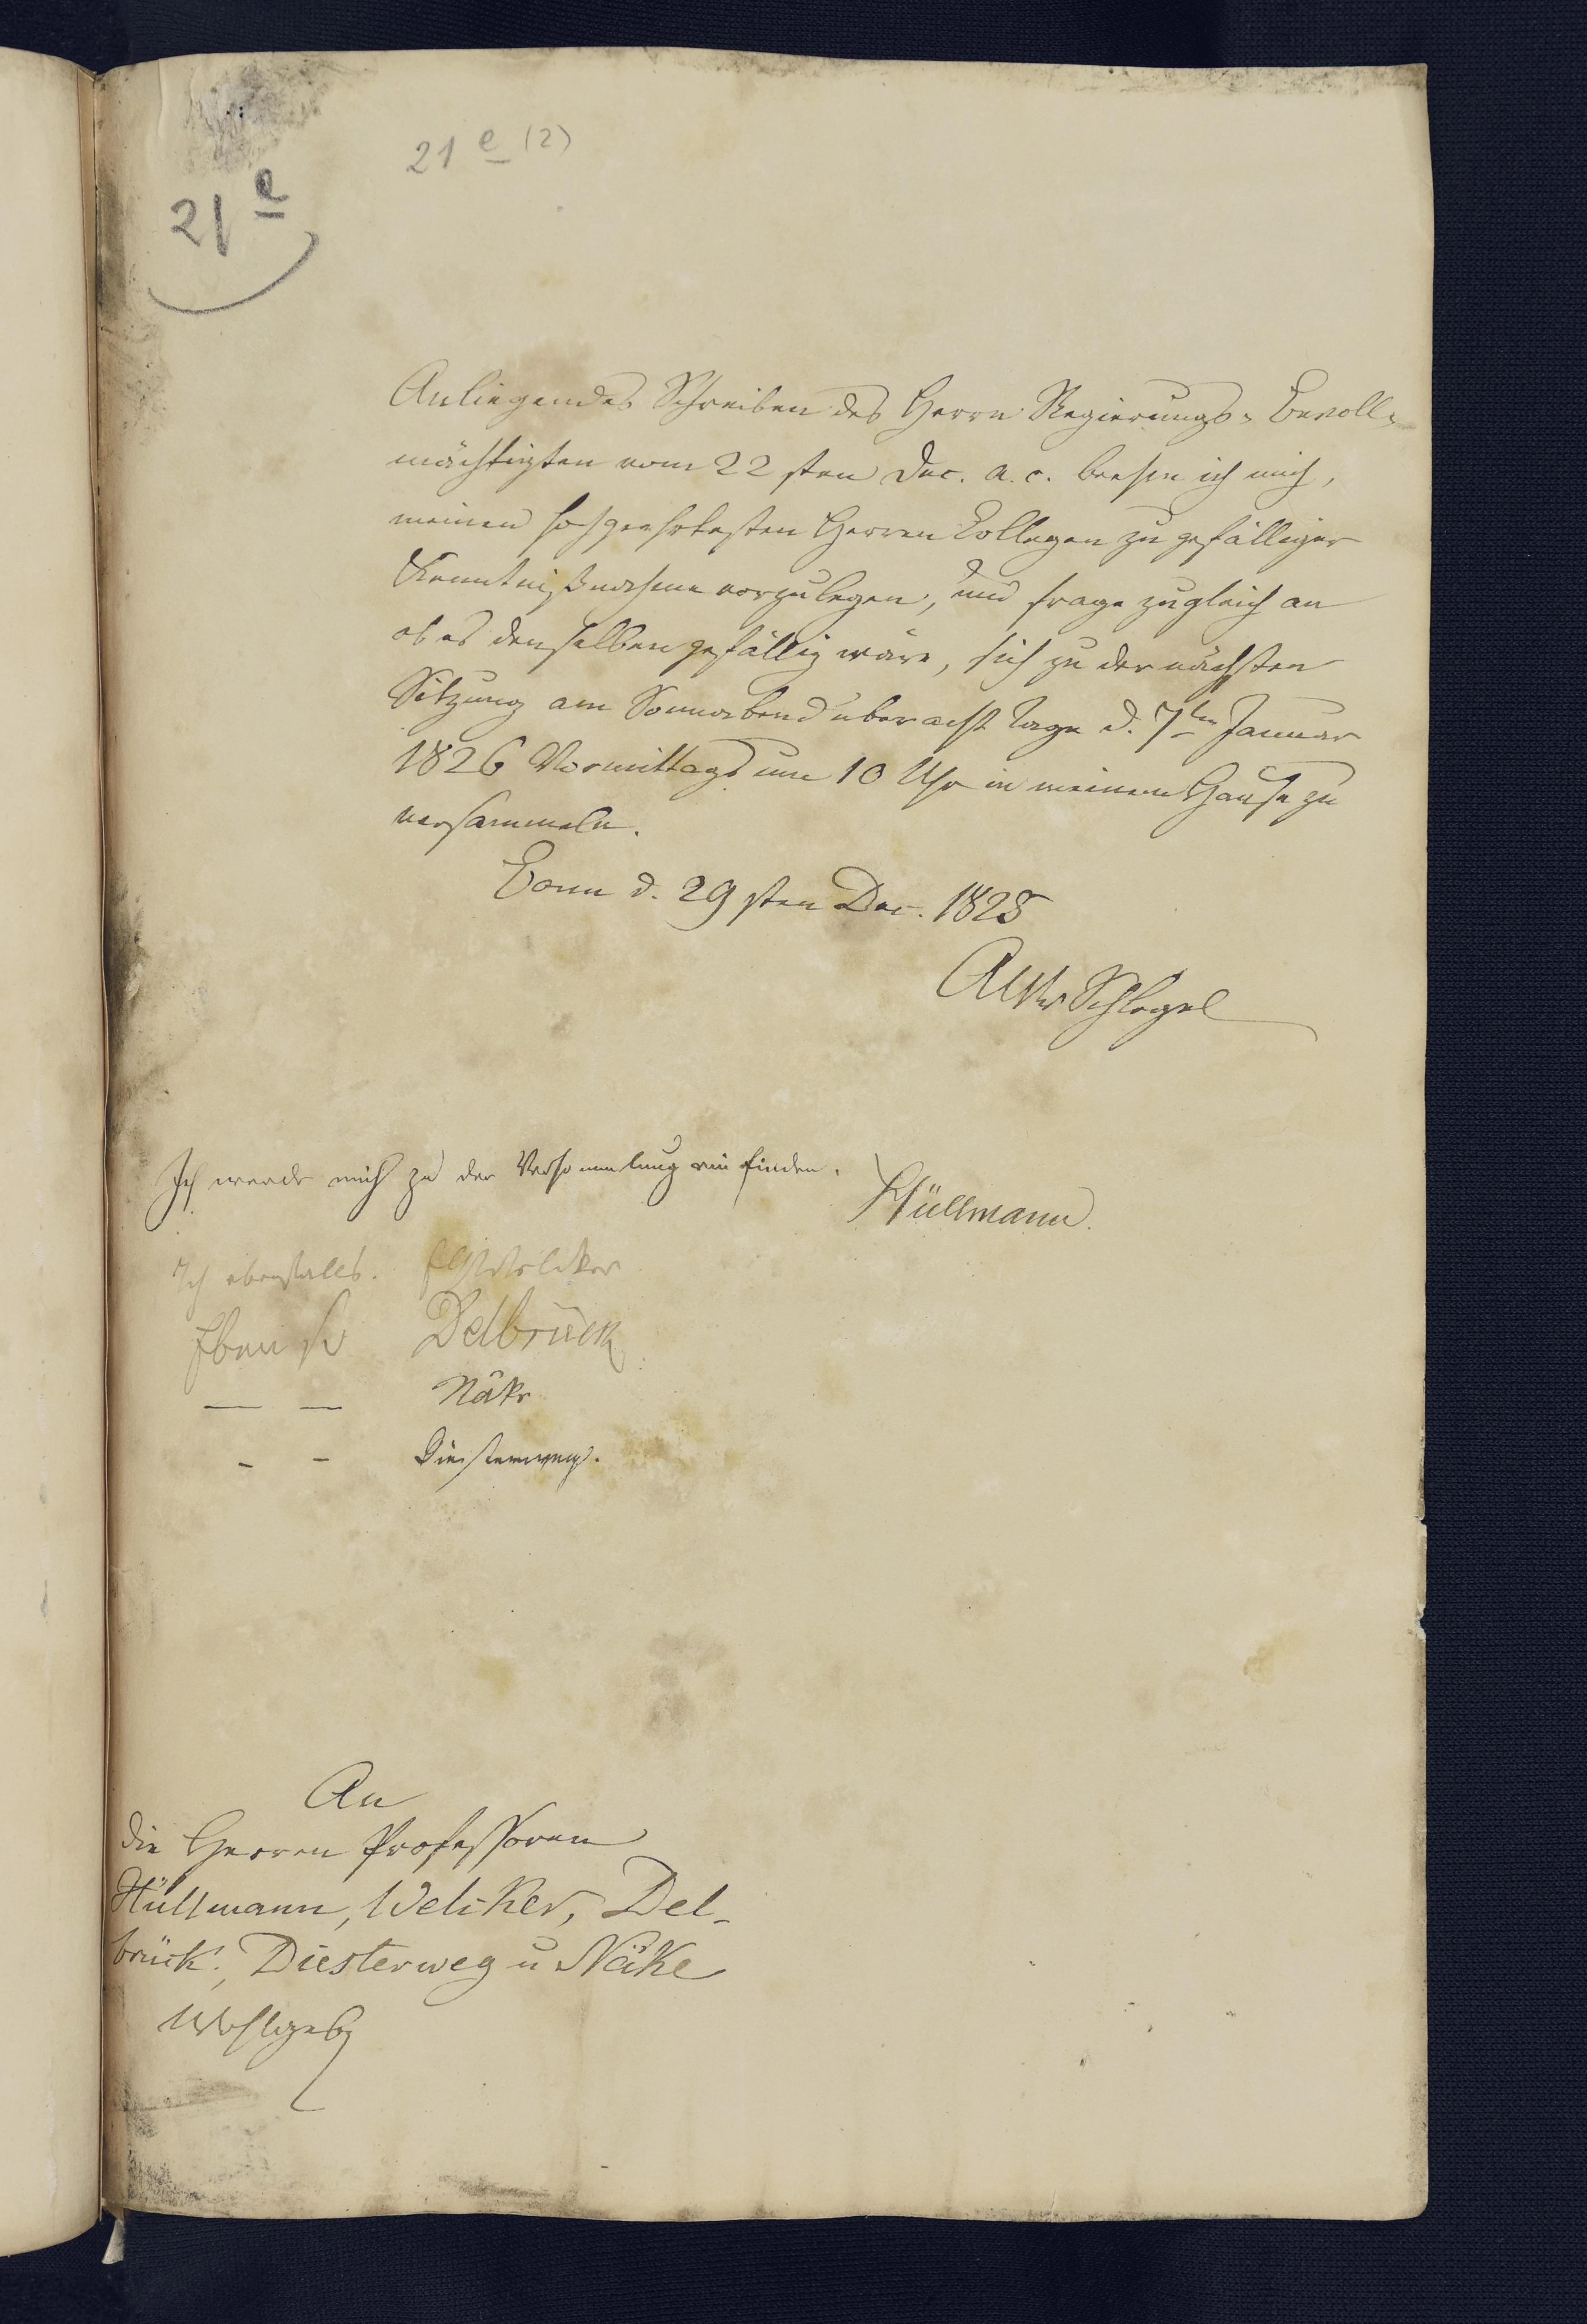 21 e (2)
21 e
Anliegendes Schreiben des Herrn Regierungs-Bevoll-
mächtigten vom 22 sten Dec. a. c. beehre ich mich,
meinen hochgeehrtesten Herren Collegen zu gefälliger
Kenntnißnahme vorzulegen, und frage zugleich an
ob es denselben gefällig wäre, sich zu der nächsten
Sitzung am Sonnabend über acht Tage d. 7ten Januar
1826 Vormittags um 10 Uhr in meinem Hause zu
versammeln.
Bonn d. 29 sten Dec. 1825
AWv Schlegel
Ich werde mich zu der Versammlung einfinden.
Hüllmann.
Ich ebenfalls. FGWelcker
Eben so Delbrück
— — Näke
- - Diesterweg.
An
die Herren Professoren
Hüllmann, Welcker, Del-
brück, Diesterweg u Näke
Wohlgeb